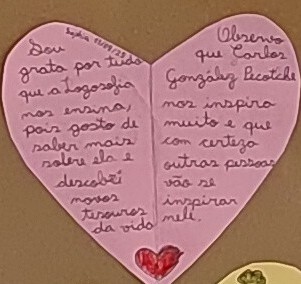 Sophia 11/09/25
Sou
grata por tudo
que a Logosofia
nos ensina,
pois gosto de
saber mais
sobre ela e
descobri
novos
tesouros
da vida
Observo
que Carlos
González Pecotche
nos inspira
muito e que
com certeza
outras pessoas
vão se
inspirar
nele.